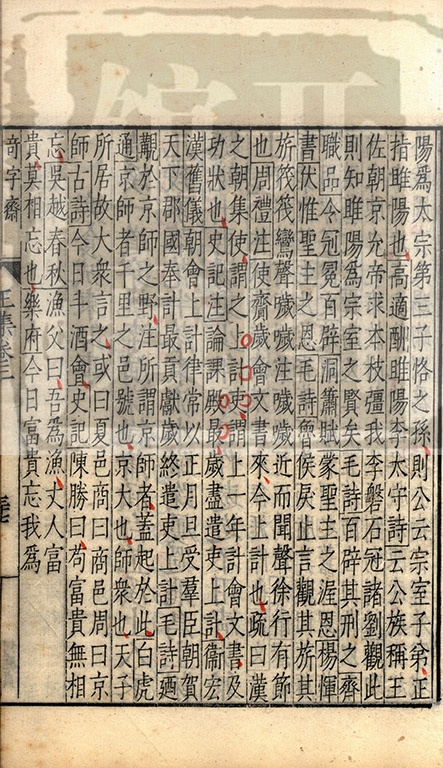 陽爲太宗第三子恪之孫則公云宗室子弟正
指睢陽也高適酬睢陽李太守詩云公族稱王
佐朝京允帝求本枝彊我李磐石冠諸劉觀此
則知睢陽爲宗室之賢矣毛詩百辟其刑之齊
職品令冠冕百辟洞簫賦蒙聖主之渥恩楊惲
書伏惟聖主之恩毛詩魯侯戾止言觀其旂其
旂筏筏鸞聲噦噦注噦噦近而聞聲徐行有節
也周禮注使齎歲會文書來今上計也疏曰漢
之朝集使謂之上計吏謂上一年計會文書及
功狀也史記注論課殿最歲盡遣吏上計衞宏
漢舊儀朝會上計律常以正月旦受羣臣朝賀
天下郡國奉計最貢獻歲終遣吏上計毛詩廼
覯於京師之野注所謂京師者蓋起於此白虎
通京師者千里之邑號也京大也師衆也天子
所居故大衆言之或曰夏邑商曰商邑周曰京
師古詩今日斗酒會史記陳勝曰苟富貴無相
忘吳越春秋漁父曰吾爲漁丈人富
貴莫相忘也樂府今日富貴忘我爲
字齋
卷三